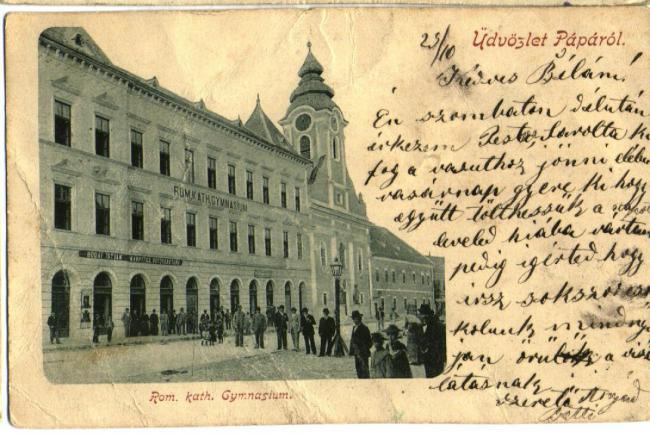 25/10
Üdvözlet Pápáról.
Kedves Bélám!
Én szombaton délután
érkezem Pestre Sarolta ki
fog a vasuthoz jönni
vasárnap gyere ki hogy
együtt tölthessük a
leveled hiába vártam
pedig igérted hogy
irsz sokszor
örülök a
látásnak
szerető
Betti
RÓM. KATH. GYMNASIUM
Rom. kath. Gymnasium.